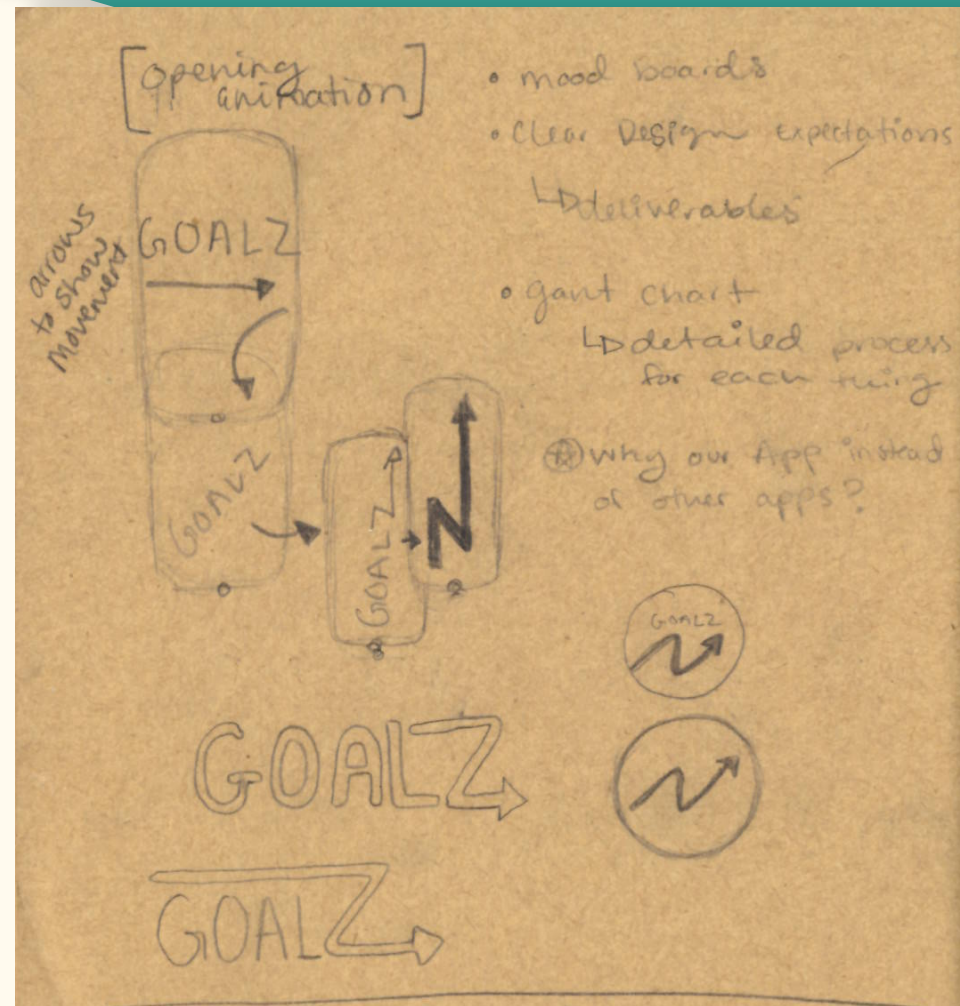 [opening
animation]
arrows
to show
movement
GOALZ
GOALZ
GOALZ
N
• mood boards
• Clear Design expectations
↳deliverables
• gant chart
↳detailed process
for each thing
✪ why our App instead
of other apps?
GOALZ
GOALZ
GOALZ